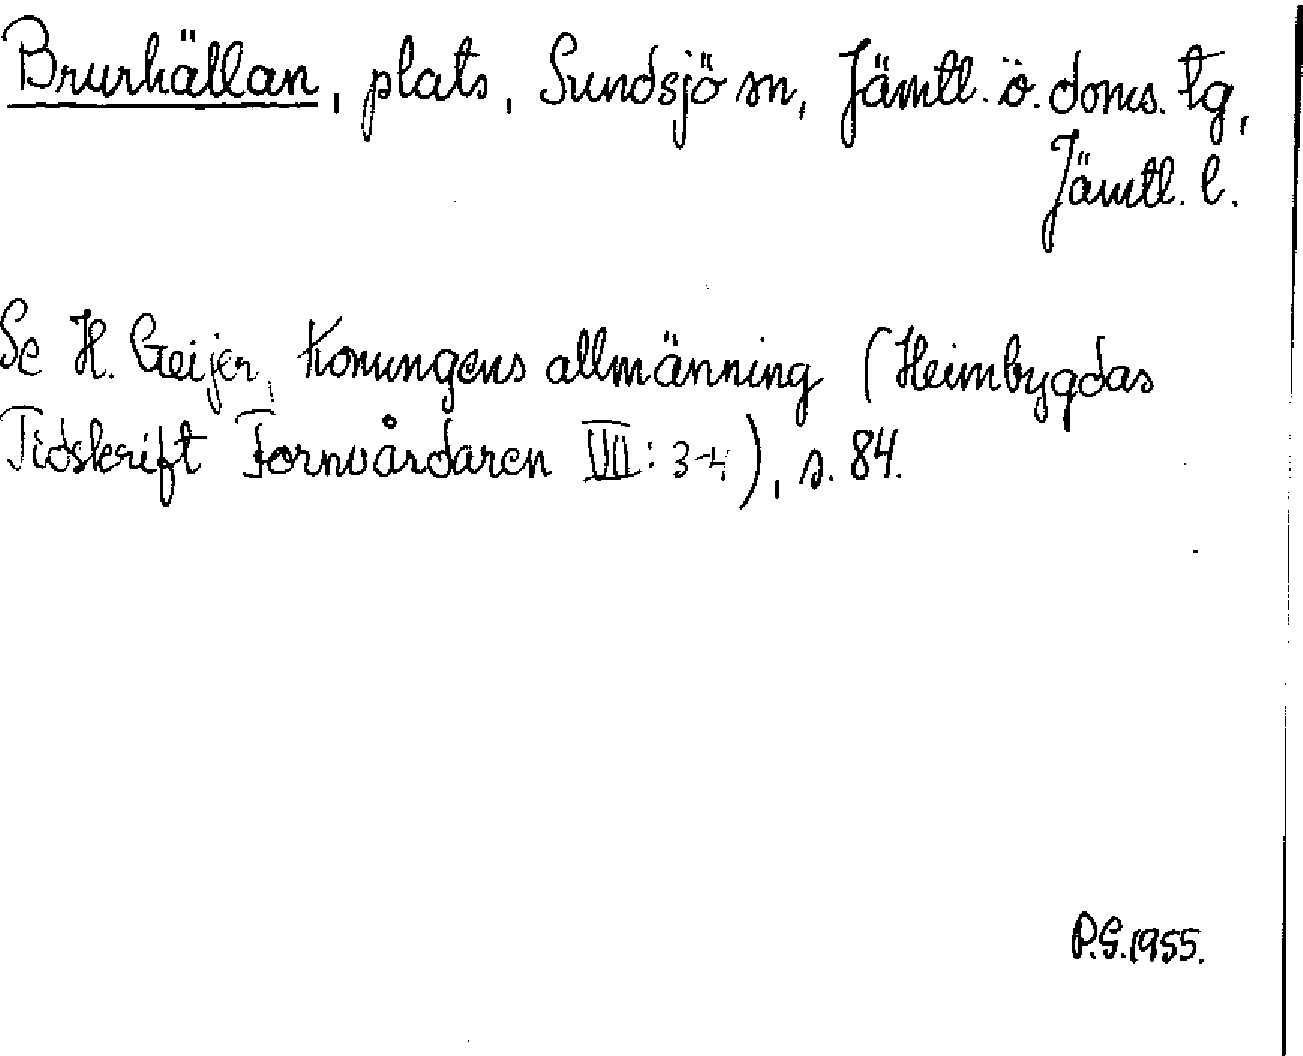 Brurhällan, plats, Sundsjö sn, Jämtl. ö. doms. tg,
Jämtl. l.
Se H. Geijer, Konungens allmänning (Heimbygdas
Tidskrift Fornvårdaren VII: 3-4), s. 84.
P.G. 1955.